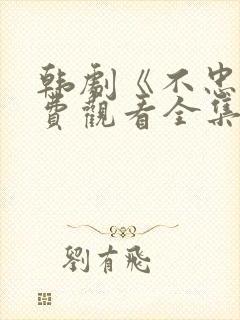 韩劇《不忠
費觀看全集
劉有飛